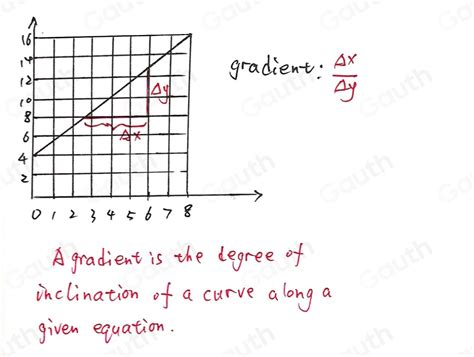 16
14
12
10
8
6
4
2
0 1 2 3 4 5 6 7 8
Δy
Δx
gradient: Δx
Δy
A gradient is the degree of
inclination of a curve along a
given equation.
Gauth